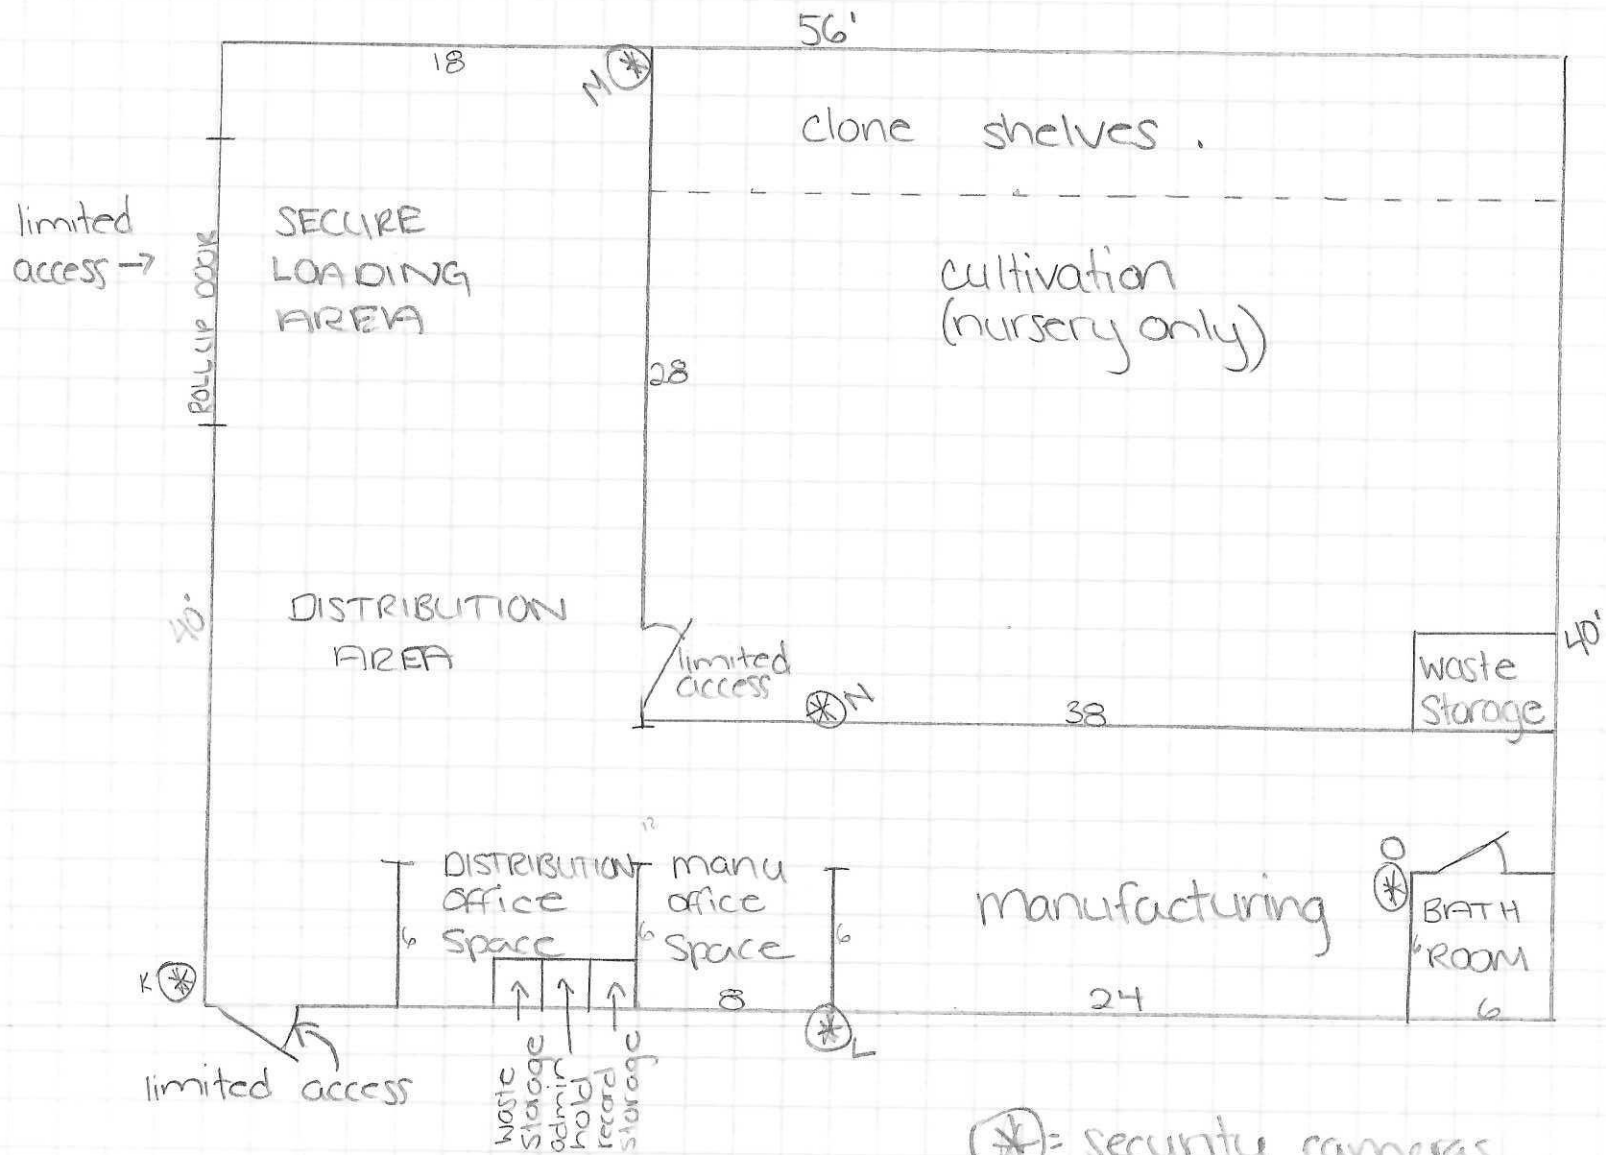 56'
18
M
clone shelves.
limited
access →
ROLLUP DOOR
SECURE
LOADING
AREA
cultivation
(nursery only)
28
40'
DISTRIBUTION
AREA
limited
access
N
38
waste
storage
40'
12
DISTRIBUTION
office
space
6
manu
office
space
6
8
6
manufacturing
24
O
BATH
ROOM
6
6
K
L
limited access
waste
storage
admin
hold
record
storage
= security cameras